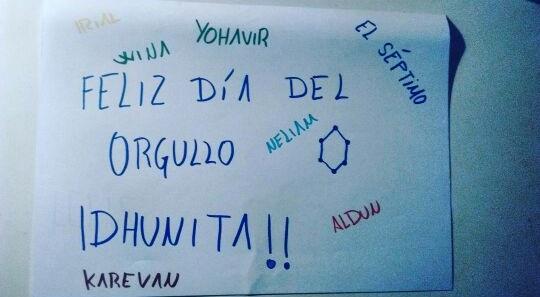 IRIAL
WINA
YOHAVIR
EL SÉPTIMO
FELIZ DÍA DEL
ORGULLO
NELIAM
IDHUNITA!!
ALDUN
KAREVAN